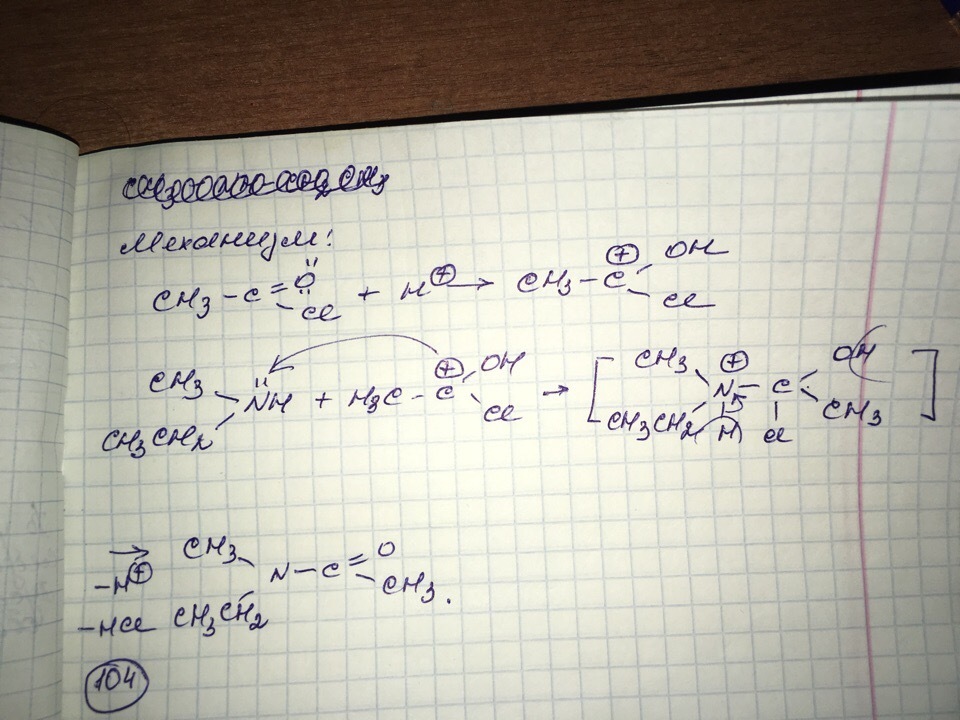 Механизм:
CH3 - C = Ö - Cl + H⊕ → CH3 - C⊕ OH Cl
CH3 CH3CH2 N̈H + H3C - C⊕ OH Cl → [CH3 CH3CH2 N⊕ H - C OH CH3 Cl]
→ -H⊕ -HCl CH3 CH3CH2 N - C = O CH3.
104